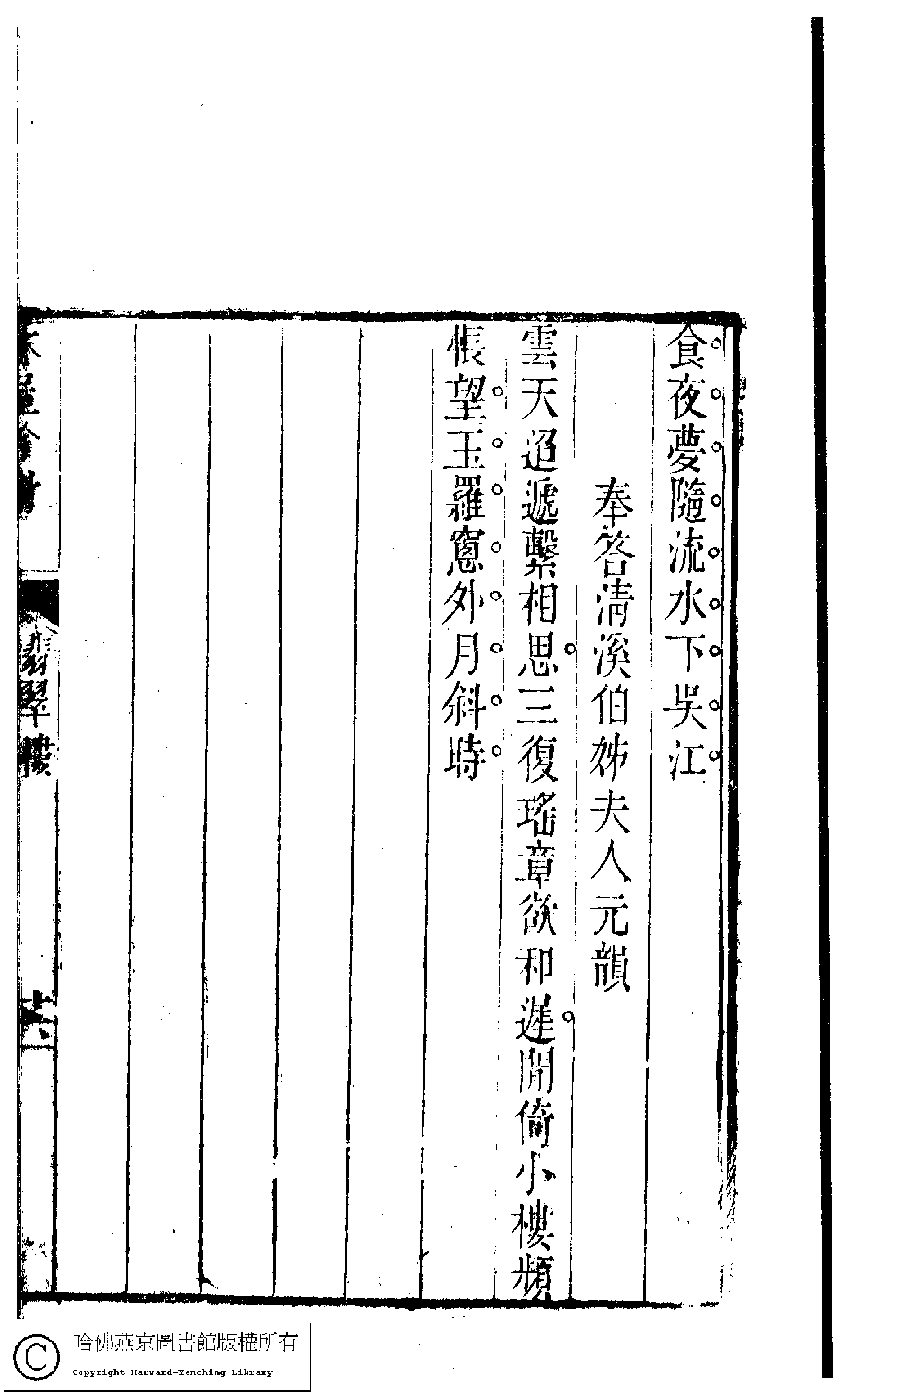 食夜夢隨流水下吳江
奉答清溪伯姊夫人元韻
雲天迢遞繫相思三復瑤章欲和遲閒倚小樓頻
悵望玉羅窻外月斜時
翡翠樓
十六
哈佛燕京圖書館版權所有
Copyright Harvard-Yenching Library